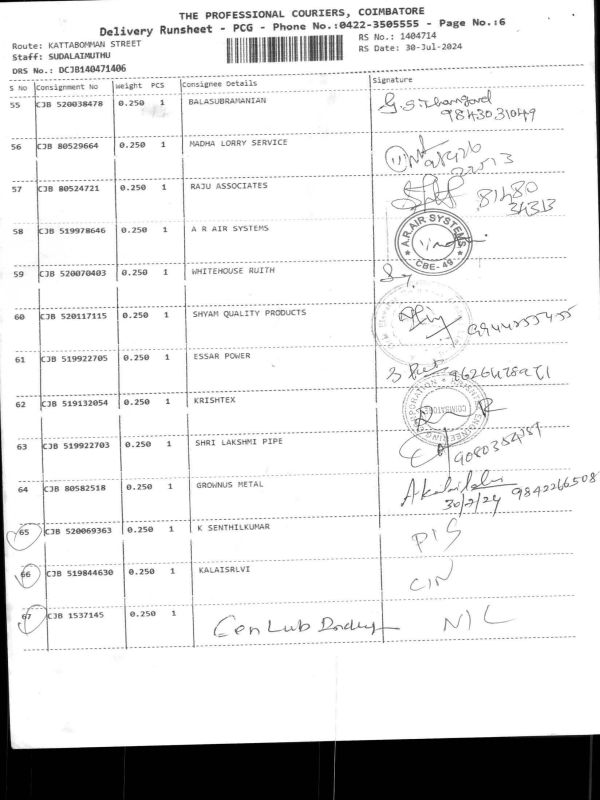 THE PROFESSIONAL COURIERS, COIMBATORE
Delivery Runsheet - PCG - Phone No.:0422-3505555 - Page No.:6
Route: KATTABOMMAN STREET
RS No.: 1404714
Staff: SUDALAIMUTHU
RS Date: 30-Jul-2024
DRS No.: DCJB140471406
S No Consignment No Weight PCS Consignee Details Signature
55 CJB 520038478 0.250 1 BALASUBRAMANIAN
9843031049
56 CJB 80529664 0.250 1 MADHA LORRY SERVICE
57 CJB 80524721 0.250 1 RAJU ASSOCIATES
81480
34313
58 CJB 519978646 0.250 1 A R AIR SYSTEMS
A.R.AIR SYSTEMS
CBE-49
59 CJB 520070403 0.250 1 WHITEHOUSE RUITH
60 CJB 520117115 0.250 1 SHYAM QUALITY PRODUCTS
61 CJB 519922705 0.250 1 ESSAR POWER
62 CJB 519132054 0.250 1 KRISHTEX
COIMBATORE
63 CJB 519922703 0.250 1 SHRI LAKSHMI PIPE
64 CJB 80582518 0.250 1 GROWNUS METAL
30/7/24 9842266508
65 CJB 520069363 0.250 1 K SENTHILKUMAR PIS
66 CJB 519844630 0.250 1 KALAISRLVI CIN
67 CJB 1537145 0.250 1 Cen Lub NIL